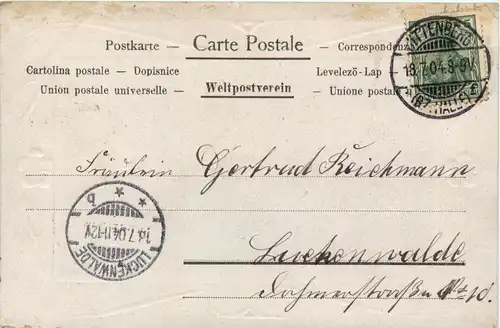 Postkarte — Carte Postale — Correspondenz
Cartolina postale — Dopisnice
Levelező-Lap —
Union postale universelle — Weltpostverein — Unione postale
WITTENBERG
7.04.8-9V
(BZ. HALLE)
Fräulein Gertrud Reichmann
Luckenwalde
LUCKENWALDE
7.04.11-12V
b
No 10.